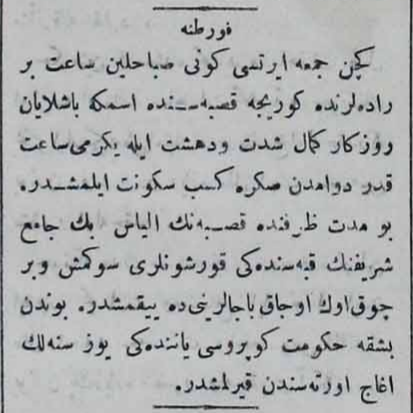 فورطنه
كچن جمعه ایرتسی كونی صباحلین ساعت بر
راده‌لرنده كوریجه قصبه‌سنده اسمكه باشلایان
روزكار كمال شدت ودهشت ایله یكرمی ساعت
قدر دوامدن صكره كسب سكونت ایلمشدر.
بو مدت ظرفنده قصبه‌نك الیاس بك جامع
شریفنك قبه‌سنده‌كی قورشونلری سوكمش وبر
چوق اوك اوجاق باجالرینی ده ییقمشدر. بوندن
بشقه حكومت كوپروسی یاننده‌كی یوز سنه‌لك
اغاج اورته‌سندن قیرلمشدر.